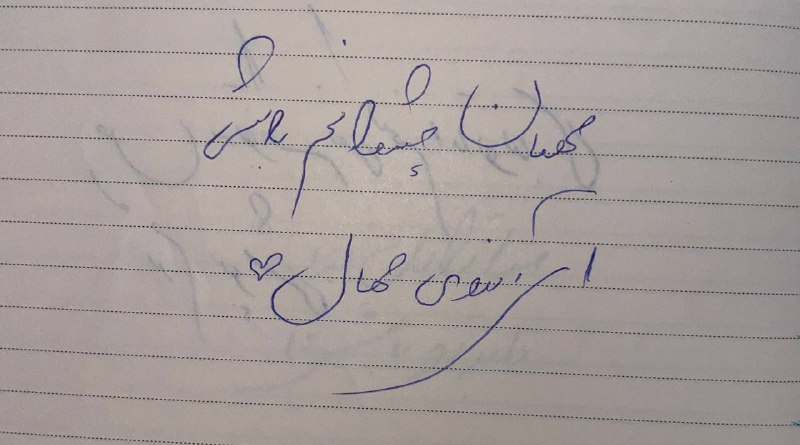 مهمان چشمانم باش
آرزوی محال ♡